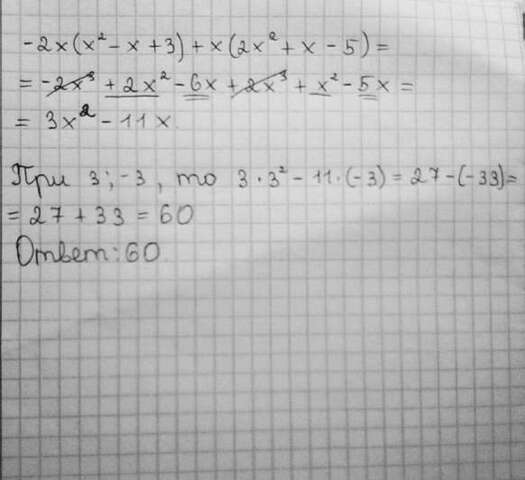 -2x(x² - x + 3) + x(2x² + x - 5) =
= -2x³ + 2x² - 6x + 2x³ + x² - 5x =
= 3x² - 11x
При 3; -3, то 3·3² - 11·(-3) = 27 - (-33) =
= 27 + 33 = 60
Ответ: 60